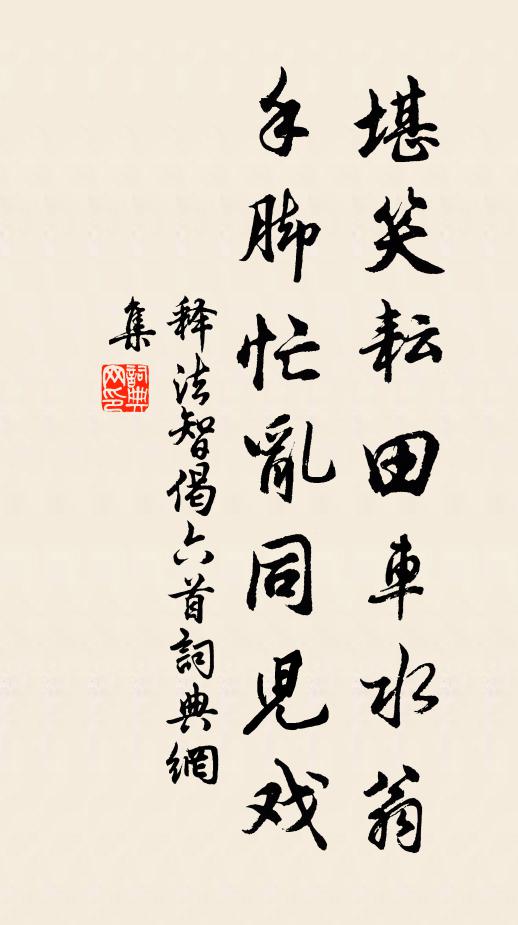 堪笑耘田車水翁
手脚忙亂同児戏
释法智偈六首詞典網
集
詞典网印